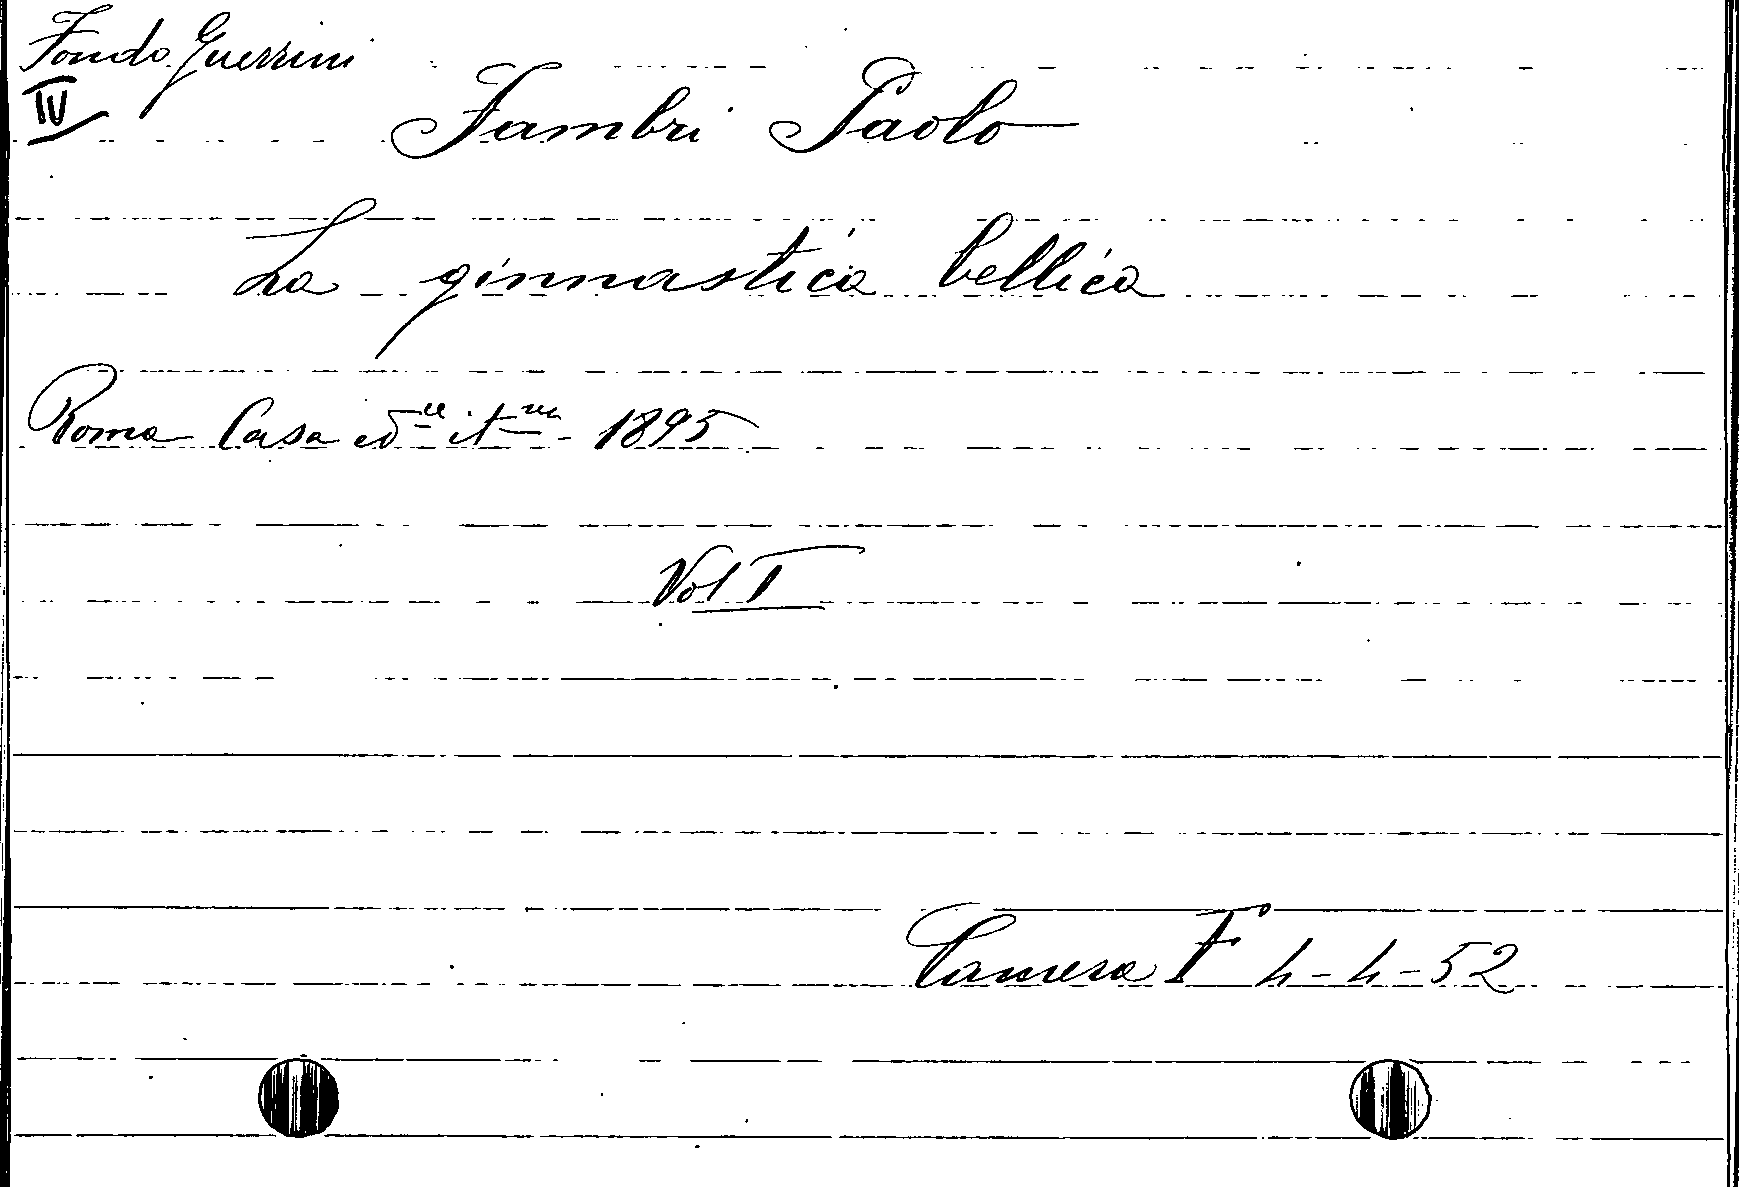 Fondo Guerrini
IV
Fambri Paolo
La ginnastica bellica
Roma Casa ed.ce it.na - 1895
Vol I
Camera F 4-4-52